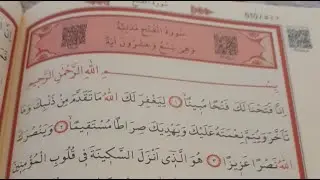 سورة الفتح
سُورَةُ الْفَتْحِ مَدَنِيَّةٌ
وَهِىَ تِسْعٌ وَعِشْرُونَ اٰيَةً
بِسْمِ اللّٰهِ الرَّحْمٰنِ الرَّحِيمِ
اِنَّا فَتَحْنَا لَكَ فَتْحًا مُبِينًا ﴿١﴾ لِيَغْفِرَ لَكَ اللّٰهُ مَا تَقَدَّمَ مِنْ ذَنْبِكَ وَمَا
تَاَخَّرَ وَيُتِمَّ نِعْمَتَهُ عَلَيْكَ وَيَهْدِيَكَ صِرَاطًا مُسْتَقِيمًا ﴿٢﴾ وَيَنْصُرَكَ
اللّٰهُ نَصْرًا عَزِيزًا ﴿٣﴾ هُوَ الَّذِى اَنْزَلَ السَّكِينَةَ فِى قُلُوبِ الْمُؤْمِنِينَ